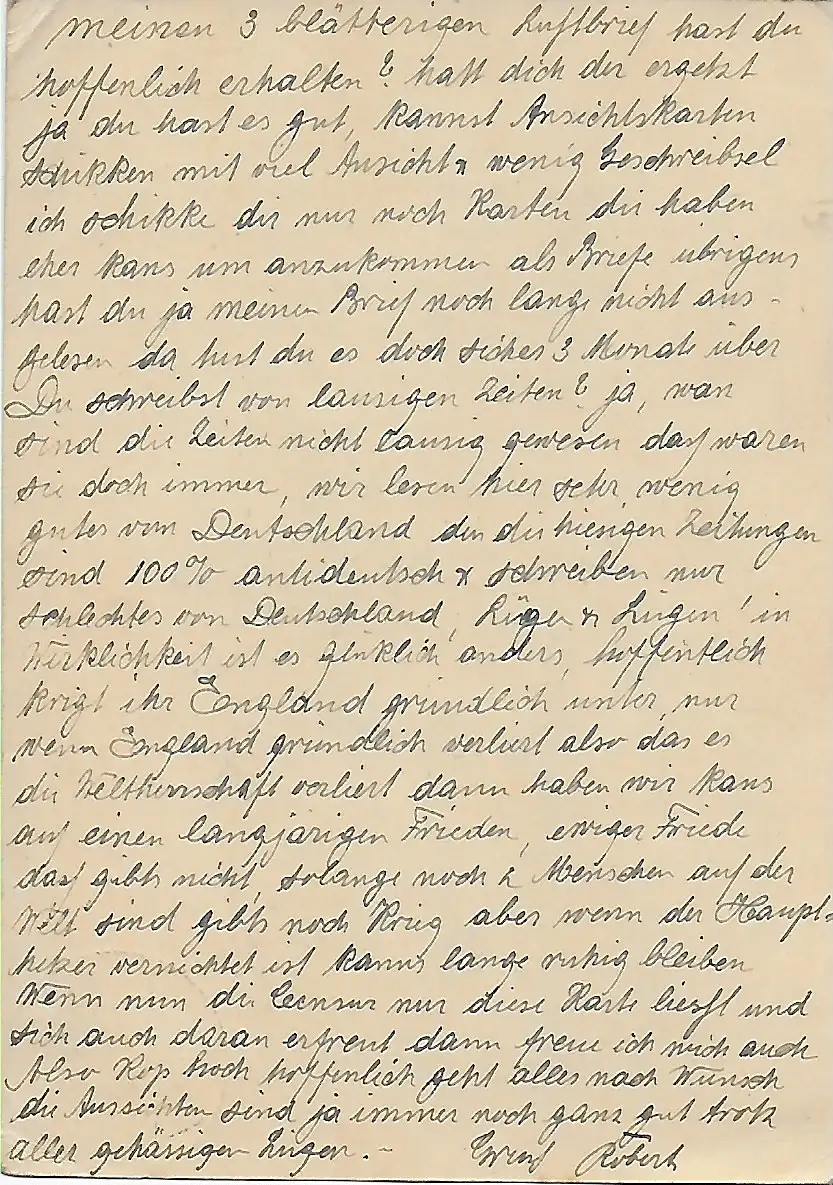 meinen 3 blätterigen Luftbrief hast du
hoffenlich erhalten? hatt dich der ergetzt
ja du hast es gut, kannst Ansichtskarten
schikken mit viel Ansicht & wenig Geschreibsel
ich schikke dir nur noch Karten die haben
eher kans um anzukommen als Briefe übrigens
hast du ja meinen Brief noch lange nicht aus-
gelesen da tust du es doch sicher 3 Monate über
Du schreibst von lausigen Zeiten? ja, wan
sind die Zeiten nicht lausig gewesen das waren
sie doch immer, wir lesen hier sehr wenig
gutes von Deutschland den die hiesigen Zeitungen
sind 100% antideutsch & schreiben nur
schlechtes von Deutschland, Lügen & Lügen! in
Wirklichkeit ist es glüklich anders, hoffentlich
krigt ihr England gründlich unter, nur
wenn England gründlich verliert also das es
die Weltherrschaft verliert dann haben wir kans
auf einen langjärigen Frieden, ewiger Friede
das gibts nicht, solange noch 2 Menschen auf der
Welt sind gibts noch Krieg aber wenn der Haupt-
hetzer vernichtet ist kanns lange ruhig bleiben
Wenn nun die Censur nur diese Karte liesst und
sich auch daran erfreut dann freue ich mich auch
Also Kop hoch hoffenlich geht alles nach Wunsch
die Aussichten sind ja immer noch ganz gut trotz
aller gehässigen Lügen.- Gruss Robert